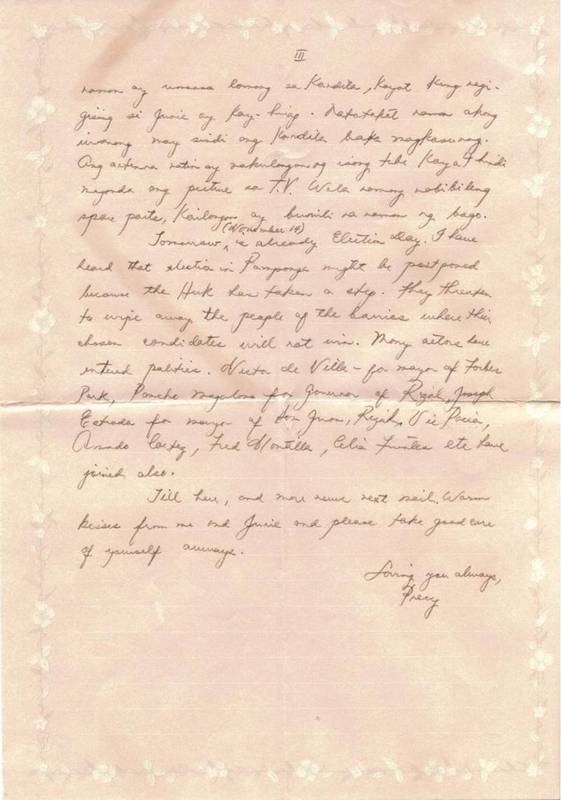 III
naman ay umaasa lamang sa Kandila, Kayat Kung nagi-
gising si Junie ay Kay-hirap. Natatakot naman akong
iwanang may sindi ang Kandila baka magkasunog.
Ang antenna natin ay nakulangan ng isang tubo Kaya't hindi
maganda ang picture sa T.V. Wala namang mabibiling
spare parts, Kailangan ay bumili na naman ng bago.
(November 14)
Tomorrow ^ is already Election Day. I have
heard that election in Pampanga might be postponed
because the Huk has taken a step. They threaten
to wipe away the people of the barrios where their
chosen candidates will not win. Many actors have
entered politics. Nestor de Villa - for mayor of Forbes
Park, Pancho Magalona for Governor of Rizal, Joseph
Estrada for mayor of San Juan, Rizal, Vic Pacia,
Amado Cortez, Fred Montilla, Celia Fuentes etc have
joined also.
Till here, and more news next mail. Warm
kisses from me and Junie and please take good care
of yourself always.
Loving you always,
Precy